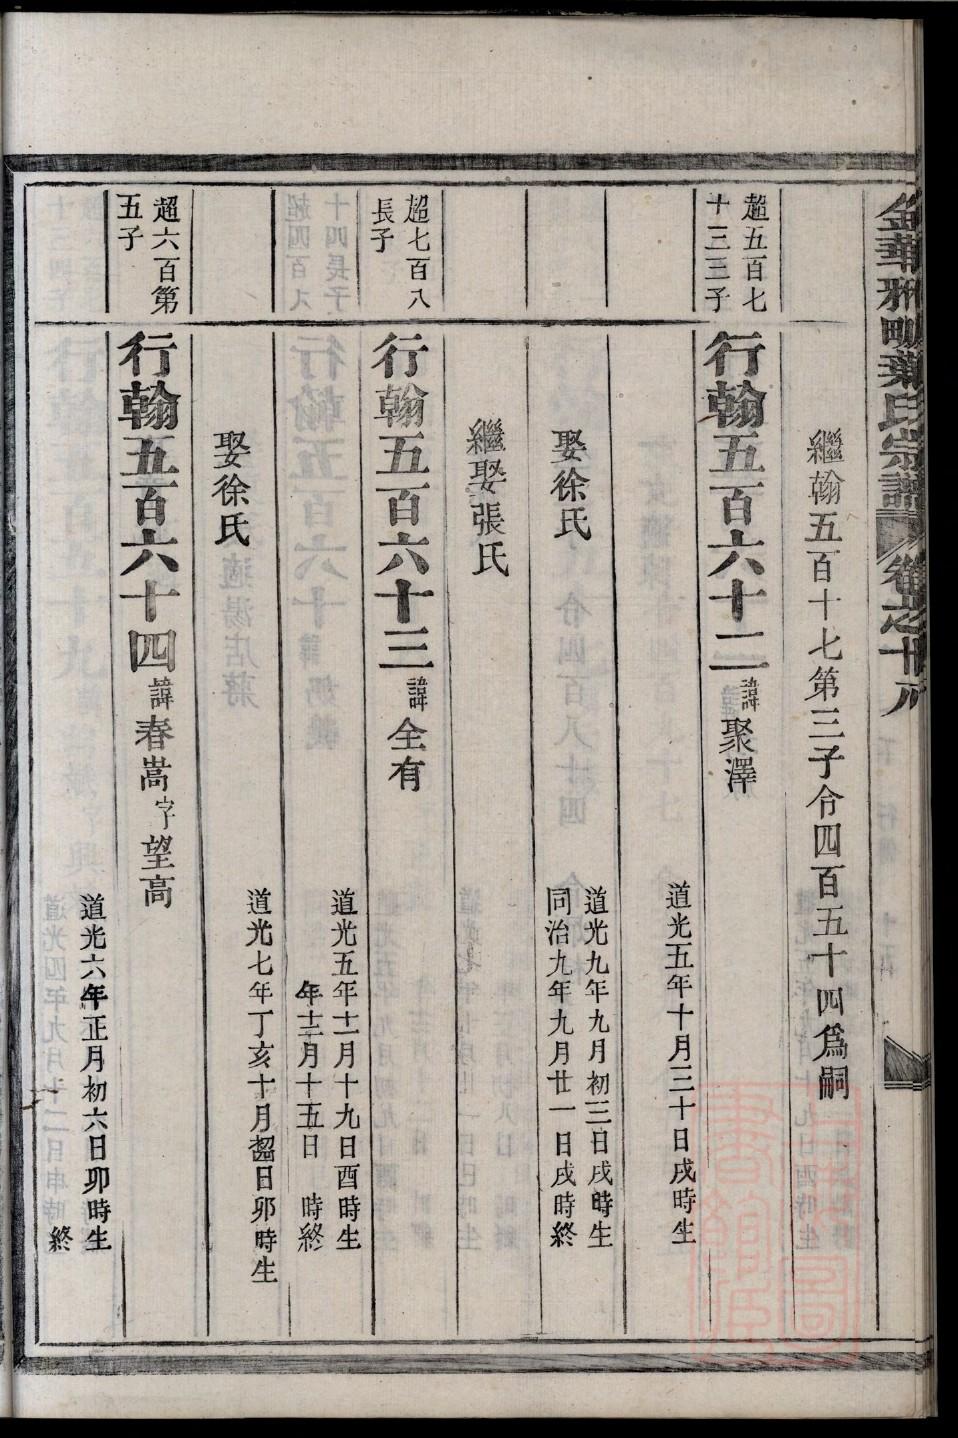 金華雅畈葉氏宗譜 卷之十八
繼翰五百十七第三子令四百五十四爲嗣
超五百七
十三三子
行翰五百六十二 諱聚澤
道光五年十月三十日戌時生
娶徐氏
道光九年九月初三日戌時生
同治九年九月廿一日戌時終
繼娶張氏
超七百八
長子
行翰五百六十三 諱全有
道光五年十一月十九日酉時生
年十二月十五日 時終
娶徐氏
道光七年丁亥十月 日卯時生
超六百第
五子
行翰五百六十四 諱春嵩 字望高
道光六年正月初六日卯時生
終